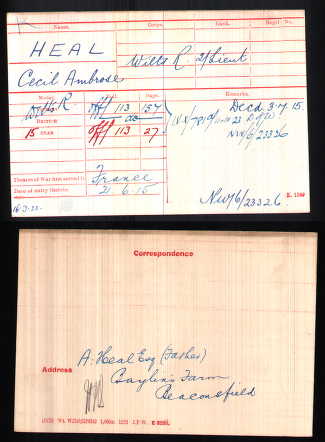 Name. Corps. Rank. Regtl. No.
HEAL
Wilts R. 2/Lieut
Cecil Ambrose
Medal. Roll. Page. Remarks.
VICTORY Wilts R. Off/ 113 157 Decd 3.7.15.
BRITISH do
15 STAR Off/ 113 27
NW/6/23326
Theatre of War first served in France
Date of entry therein 21.6.15
NW/6/23326 K. 1380
Correspondence
Address
A. Heal Esq (Father)
Baylin's Farm
Beaconsfield